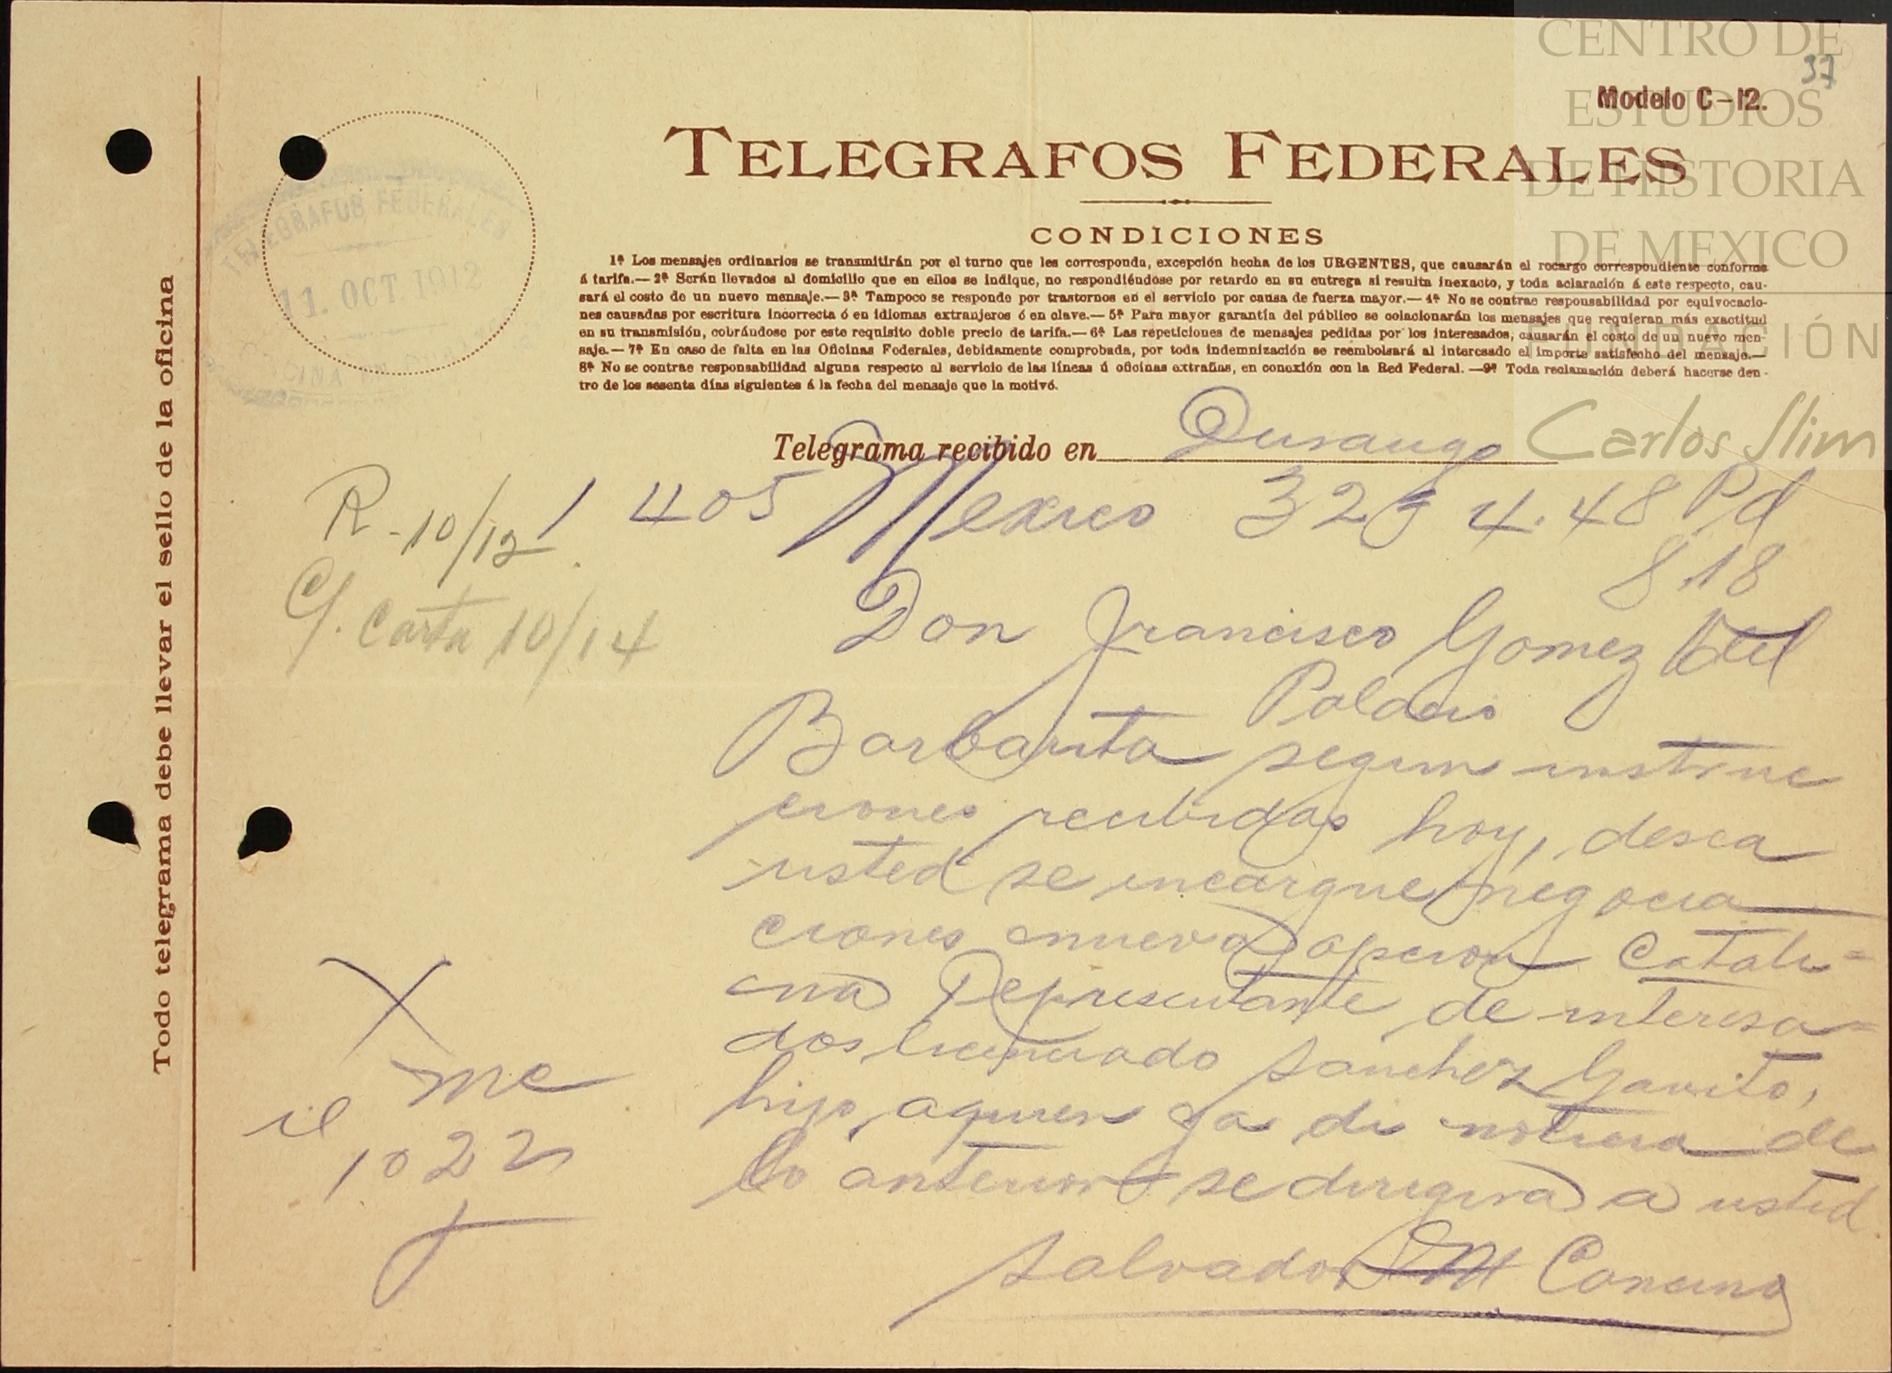 CENTRO DE
ESTUDIOS
DE HISTORIA
DE MEXICO
FUNDACIÓN
Carlos Slim
37
Modelo C-12.
TELEGRAFOS FEDERALES
CONDICIONES
1ª Los mensajes ordinarios se transmitirán por el turno que les corresponda, excepción hecha de los URGENTES, que causarán el recargo correspondiente conforme
á tarifa.— 2ª Serán llevados al domicilio que en ellos se indique, no respondiéndose por retardo en su entrega si resulta inexacto, y toda aclaración á este respecto, cau-
sará el costo de un nuevo mensaje.— 3ª Tampoco se responde por trastornos en el servicio por causa de fuerza mayor.— 4ª No se contrae responsabilidad por equivocacio-
nes causadas por escritura incorrecta ó en idiomas extranjeros ó en clave.— 5ª Para mayor garantía del público se colacionarán los mensajes que requieran más exactitud
en su transmisión, cobrándose por este requisito doble precio de tarifa.— 6ª Las repeticiones de mensajes pedidas por los interesados, causarán el costo de un nuevo men-
saje.— 7ª En caso de falta en las Oficinas Federales, debidamente comprobada, por toda indemnización se reembolsará al interesado el importe satisfecho del mensaje.—
8ª No se contrae responsabilidad alguna respecto al servicio de las líneas ú oficinas extrañas, en conexión con la Red Federal. —9ª Toda reclamación deberá hacerse den-
tro de los sesenta días siguientes á la fecha del mensaje que la motivó.
TELEGRAFOS FEDERALES
11. OCT 1912
Todo telegrama debe llevar el sello de la oficina
Telegrama recibido en Durango
R-10/12
1 405 Mexico 32 4.48 Pd
8.18
C/. Carta 10/14
Don Francisco Gomez del
Palacio
Barbarita segun instruc
ciones recibidas hoy, desea
usted se encargue negocia
ciones nueva opcion Catali-
na Representante de interesa-
dos licenciado Sanchez Gavito,
hijo, a quien ya di noticia de
lo anterior se dirigira a usted
Salvador M Cancino
X
me
1022